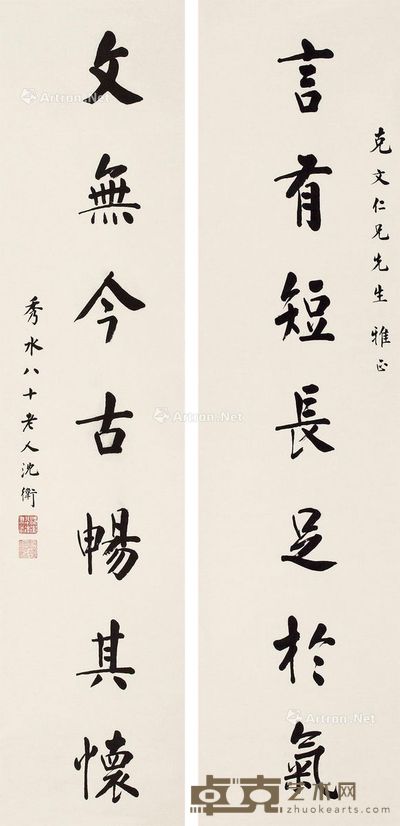 克文仁兄先生 雅正
言有短長足於氣
文無今古暢其懷
秀水八十老人沈衛
Artron.Net
Artron.Net
Artron.Net
Artron.Net
卓克艺术网
zhuokearts.com